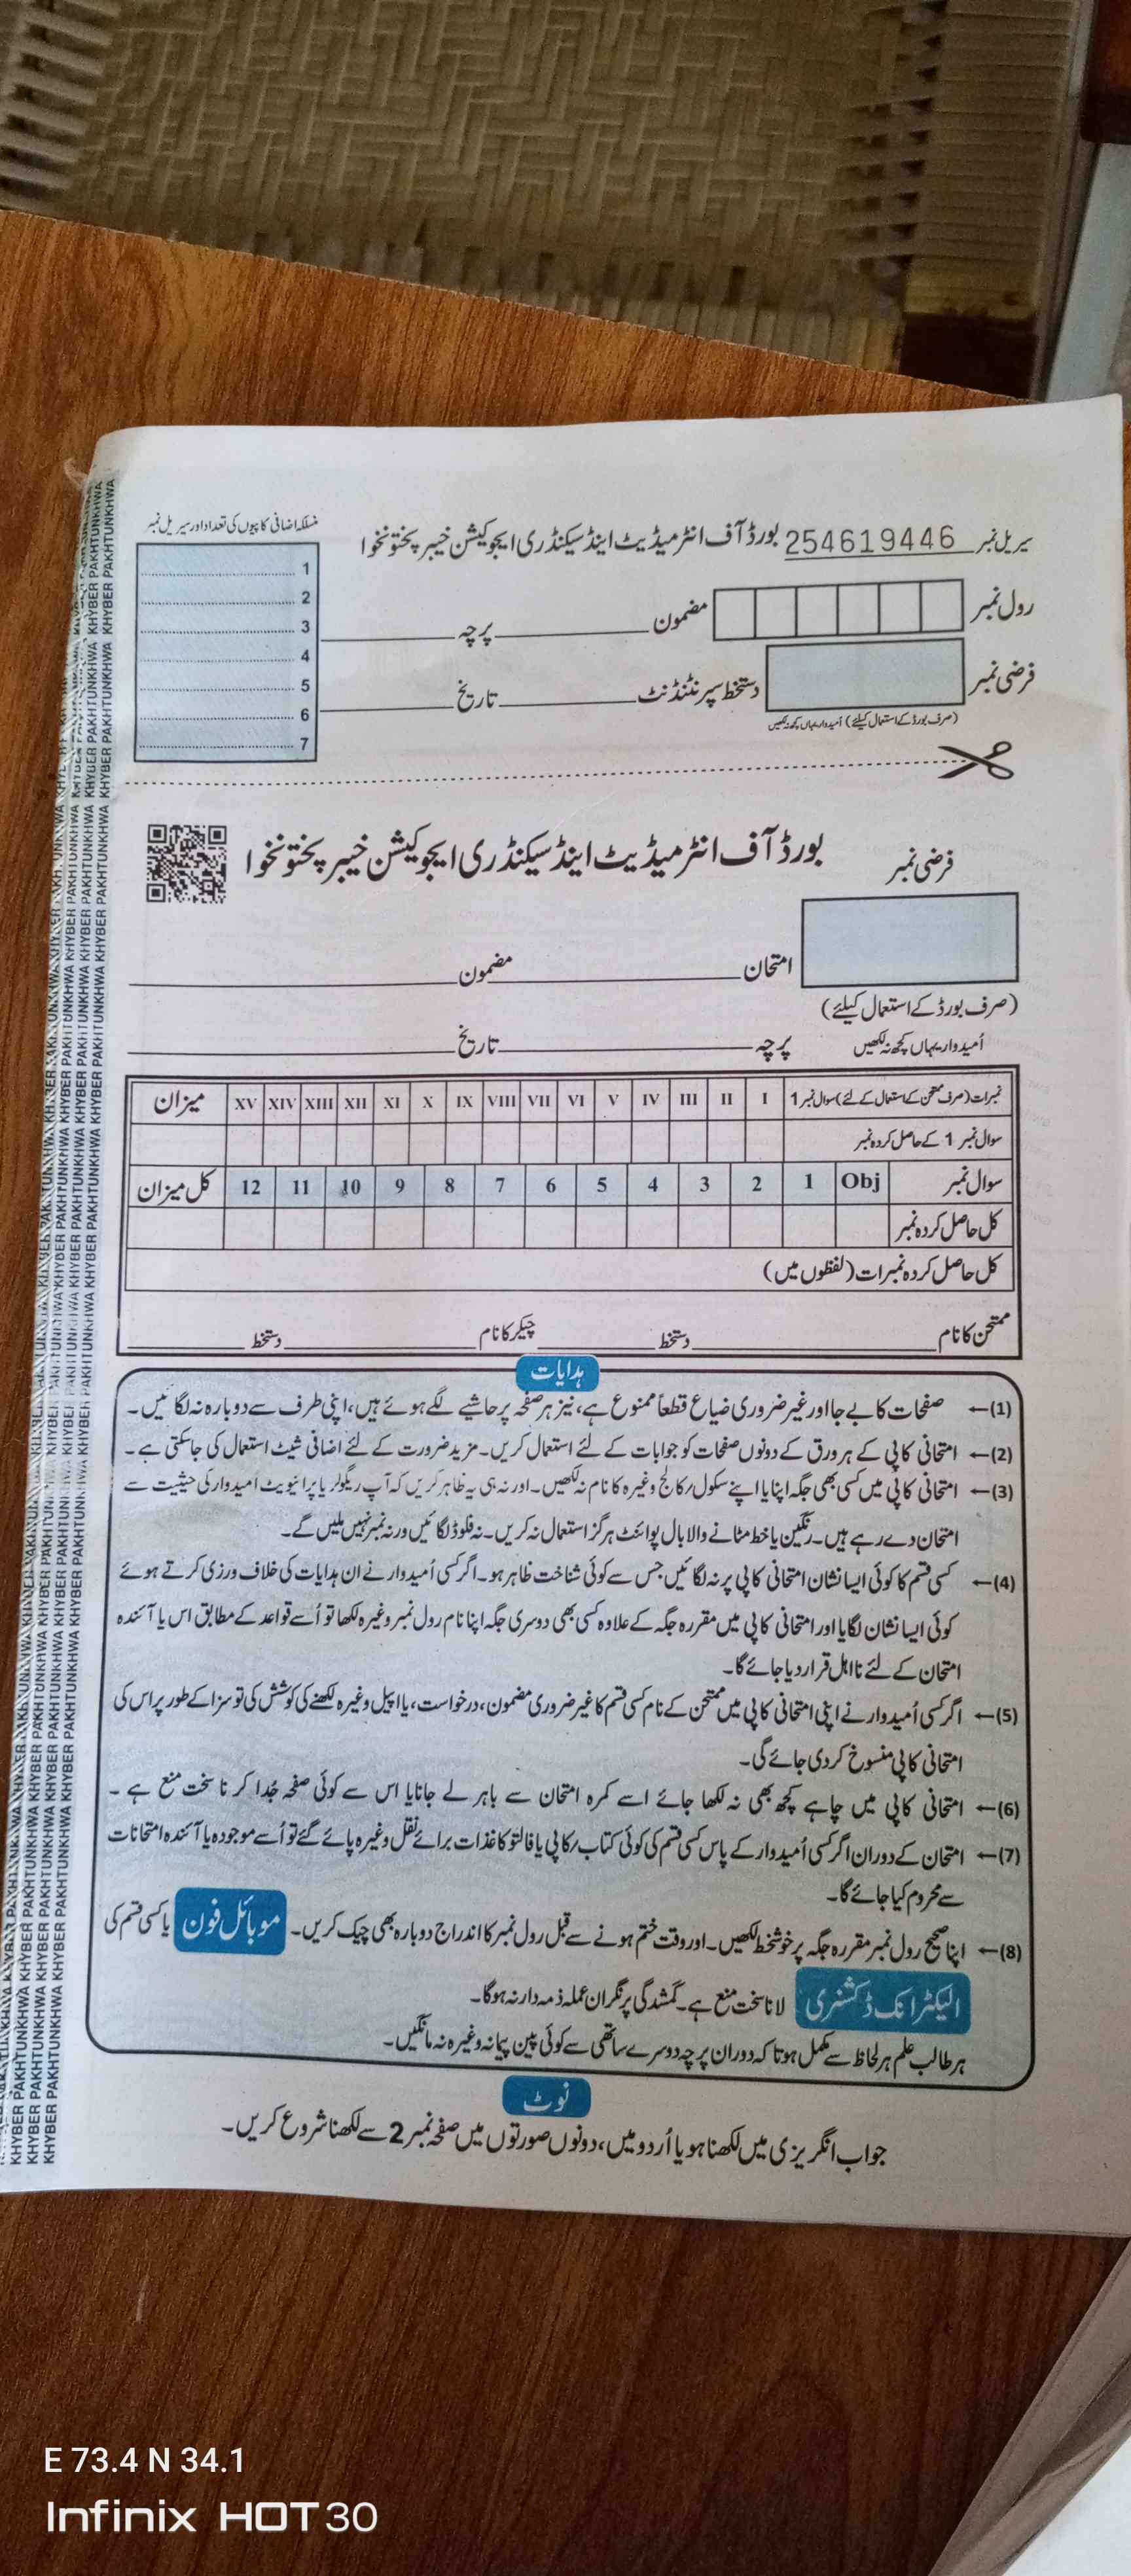 سیریل نمبر 254619446 بورڈ آف انٹرمیڈیٹ اینڈ سیکنڈری ایجوکیشن خیبر پختونخوا
منسلکہ اضافی کاپیوں کی تعداد اور سیریل نمبر
رول نمبر
مضمون پرچہ
فرضی نمبر
دستخط سپرنٹنڈنٹ تاریخ
(صرف بورڈ کے استعمال کیلئے) اُمیدوار یہاں کچھ نہ لکھیں
1
2
3
4
5
6
7
بورڈ آف انٹرمیڈیٹ اینڈ سیکنڈری ایجوکیشن خیبر پختونخوا
فرضی نمبر
امتحان مضمون
(صرف بورڈ کے استعمال کیلئے)
اُمیدوار یہاں کچھ نہ لکھیں
پرچہ تاریخ
نمبرات (صرف ممتحن کے استعمال کے لئے) سوال نمبر 1 I II III IV V VI VII VIII IX X XI XII XIII XIV XV میزان
سوال نمبر 1 کے حاصل کردہ نمبر
سوال نمبر Obj 1 2 3 4 5 6 7 8 9 10 11 12 کل میزان
کل حاصل کردہ نمبر
کل حاصل کردہ نمبرات (لفظوں میں)
ممتحن کا نام دستخط چیکر کا نام دستخط
ہدایات
(1)← صفحات کا بے جا اور غیر ضروری ضیاع قطعاً ممنوع ہے، نیز ہر صفحہ پر حاشیے لگے ہوئے ہیں، اپنی طرف سے دوبارہ نہ لگائیں۔
(2)← امتحانی کاپی کے ہر ورق کے دونوں صفحات کو جوابات کے لئے استعمال کریں۔ مزید ضرورت کے لئے اضافی شیٹ استعمال کی جاسکتی ہے۔
(3)← امتحانی کاپی میں کسی بھی جگہ اپنا یا اپنے سکول/کالج وغیرہ کا نام نہ لکھیں۔ اور نہ ہی یہ ظاہر کریں کہ آپ ریگولر یا پرائیویٹ اُمیدوار کی حیثیت سے
امتحان دے رہے ہیں۔ رنگین یا خط مٹانے والا بال پوائنٹ ہرگز استعمال نہ کریں۔ نہ فلوڈ لگائیں ورنہ نمبر نہیں ملیں گے۔
(4)← کسی قسم کا کوئی ایسا نشان امتحانی کاپی پر نہ لگائیں جس سے کوئی شناخت ظاہر ہو۔ اگر کسی اُمیدوار نے ان ہدایات کی خلاف ورزی کرتے ہوئے
کوئی ایسا نشان لگایا اور امتحانی کاپی میں مقررہ جگہ کے علاوہ کسی بھی دوسری جگہ اپنا نام رول نمبر وغیرہ لکھا تو اُسے قواعد کے مطابق اس یا آئندہ
امتحان کے لئے نااہل قرار دیا جائے گا۔
(5)← اگر کسی اُمیدوار نے اپنی امتحانی کاپی میں ممتحن کے نام کسی قسم کا غیر ضروری مضمون، درخواست، یا اپیل وغیرہ لکھنے کی کوشش کی تو سزا کے طور پر اس کی
امتحانی کاپی منسوخ کر دی جائے گی۔
(6)← امتحانی کاپی میں چاہے کچھ بھی نہ لکھا جائے اسے کمرہ امتحان سے باہر لے جانا یا اس سے کوئی صفحہ جُدا کرنا سخت منع ہے۔
(7)← امتحان کے دوران اگر کسی اُمیدوار کے پاس کسی قسم کی کوئی کتاب/کاپی یا فالتو کاغذات برائے نقل وغیرہ پائے گئے تو اُسے موجودہ یا آئندہ امتحانات
سے محروم کیا جائے گا۔
(8)← اپنا صحیح رول نمبر مقررہ جگہ پر خوشخط لکھیں۔ اور وقت ختم ہونے سے قبل رول نمبر کا اندراج دوبارہ بھی چیک کریں۔ موبائل فون یا کسی قسم کی
الیکٹرانک ڈکشنری لانا سخت منع ہے۔ گمشدگی پر نگران عملہ ذمہ دار نہ ہوگا۔
ہر طالب علم ہر لحاظ سے مکمل ہو تا کہ دوران پرچہ دوسرے ساتھی سے کوئی پین پیمانہ وغیرہ نہ مانگیں۔
نوٹ
جواب انگریزی میں لکھنا ہو یا اُردو میں، دونوں صورتوں میں صفحہ نمبر 2 سے لکھنا شروع کریں۔
KHYBER PAKHTUNKHWA KHYBER PAKHTUNKHWA KHYBER PAKHTUNKHWA
E 73.4 N 34.1
Infinix HOT 30